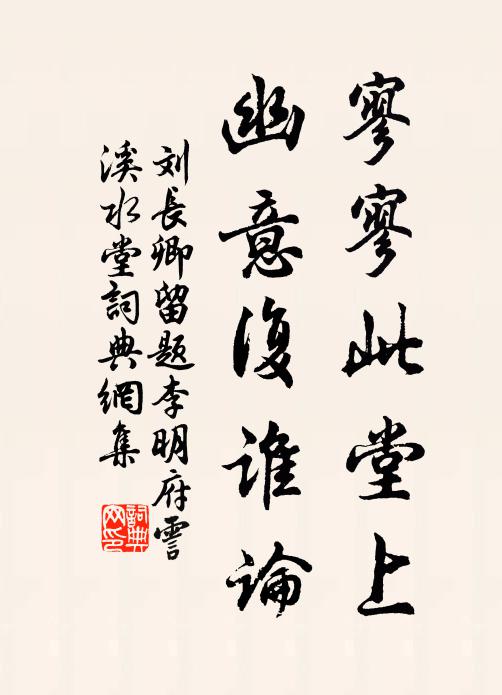 寥寥此堂上
幽意復谁論
刘長卿留題李明府霅
溪水堂詞典網集
詞典网印